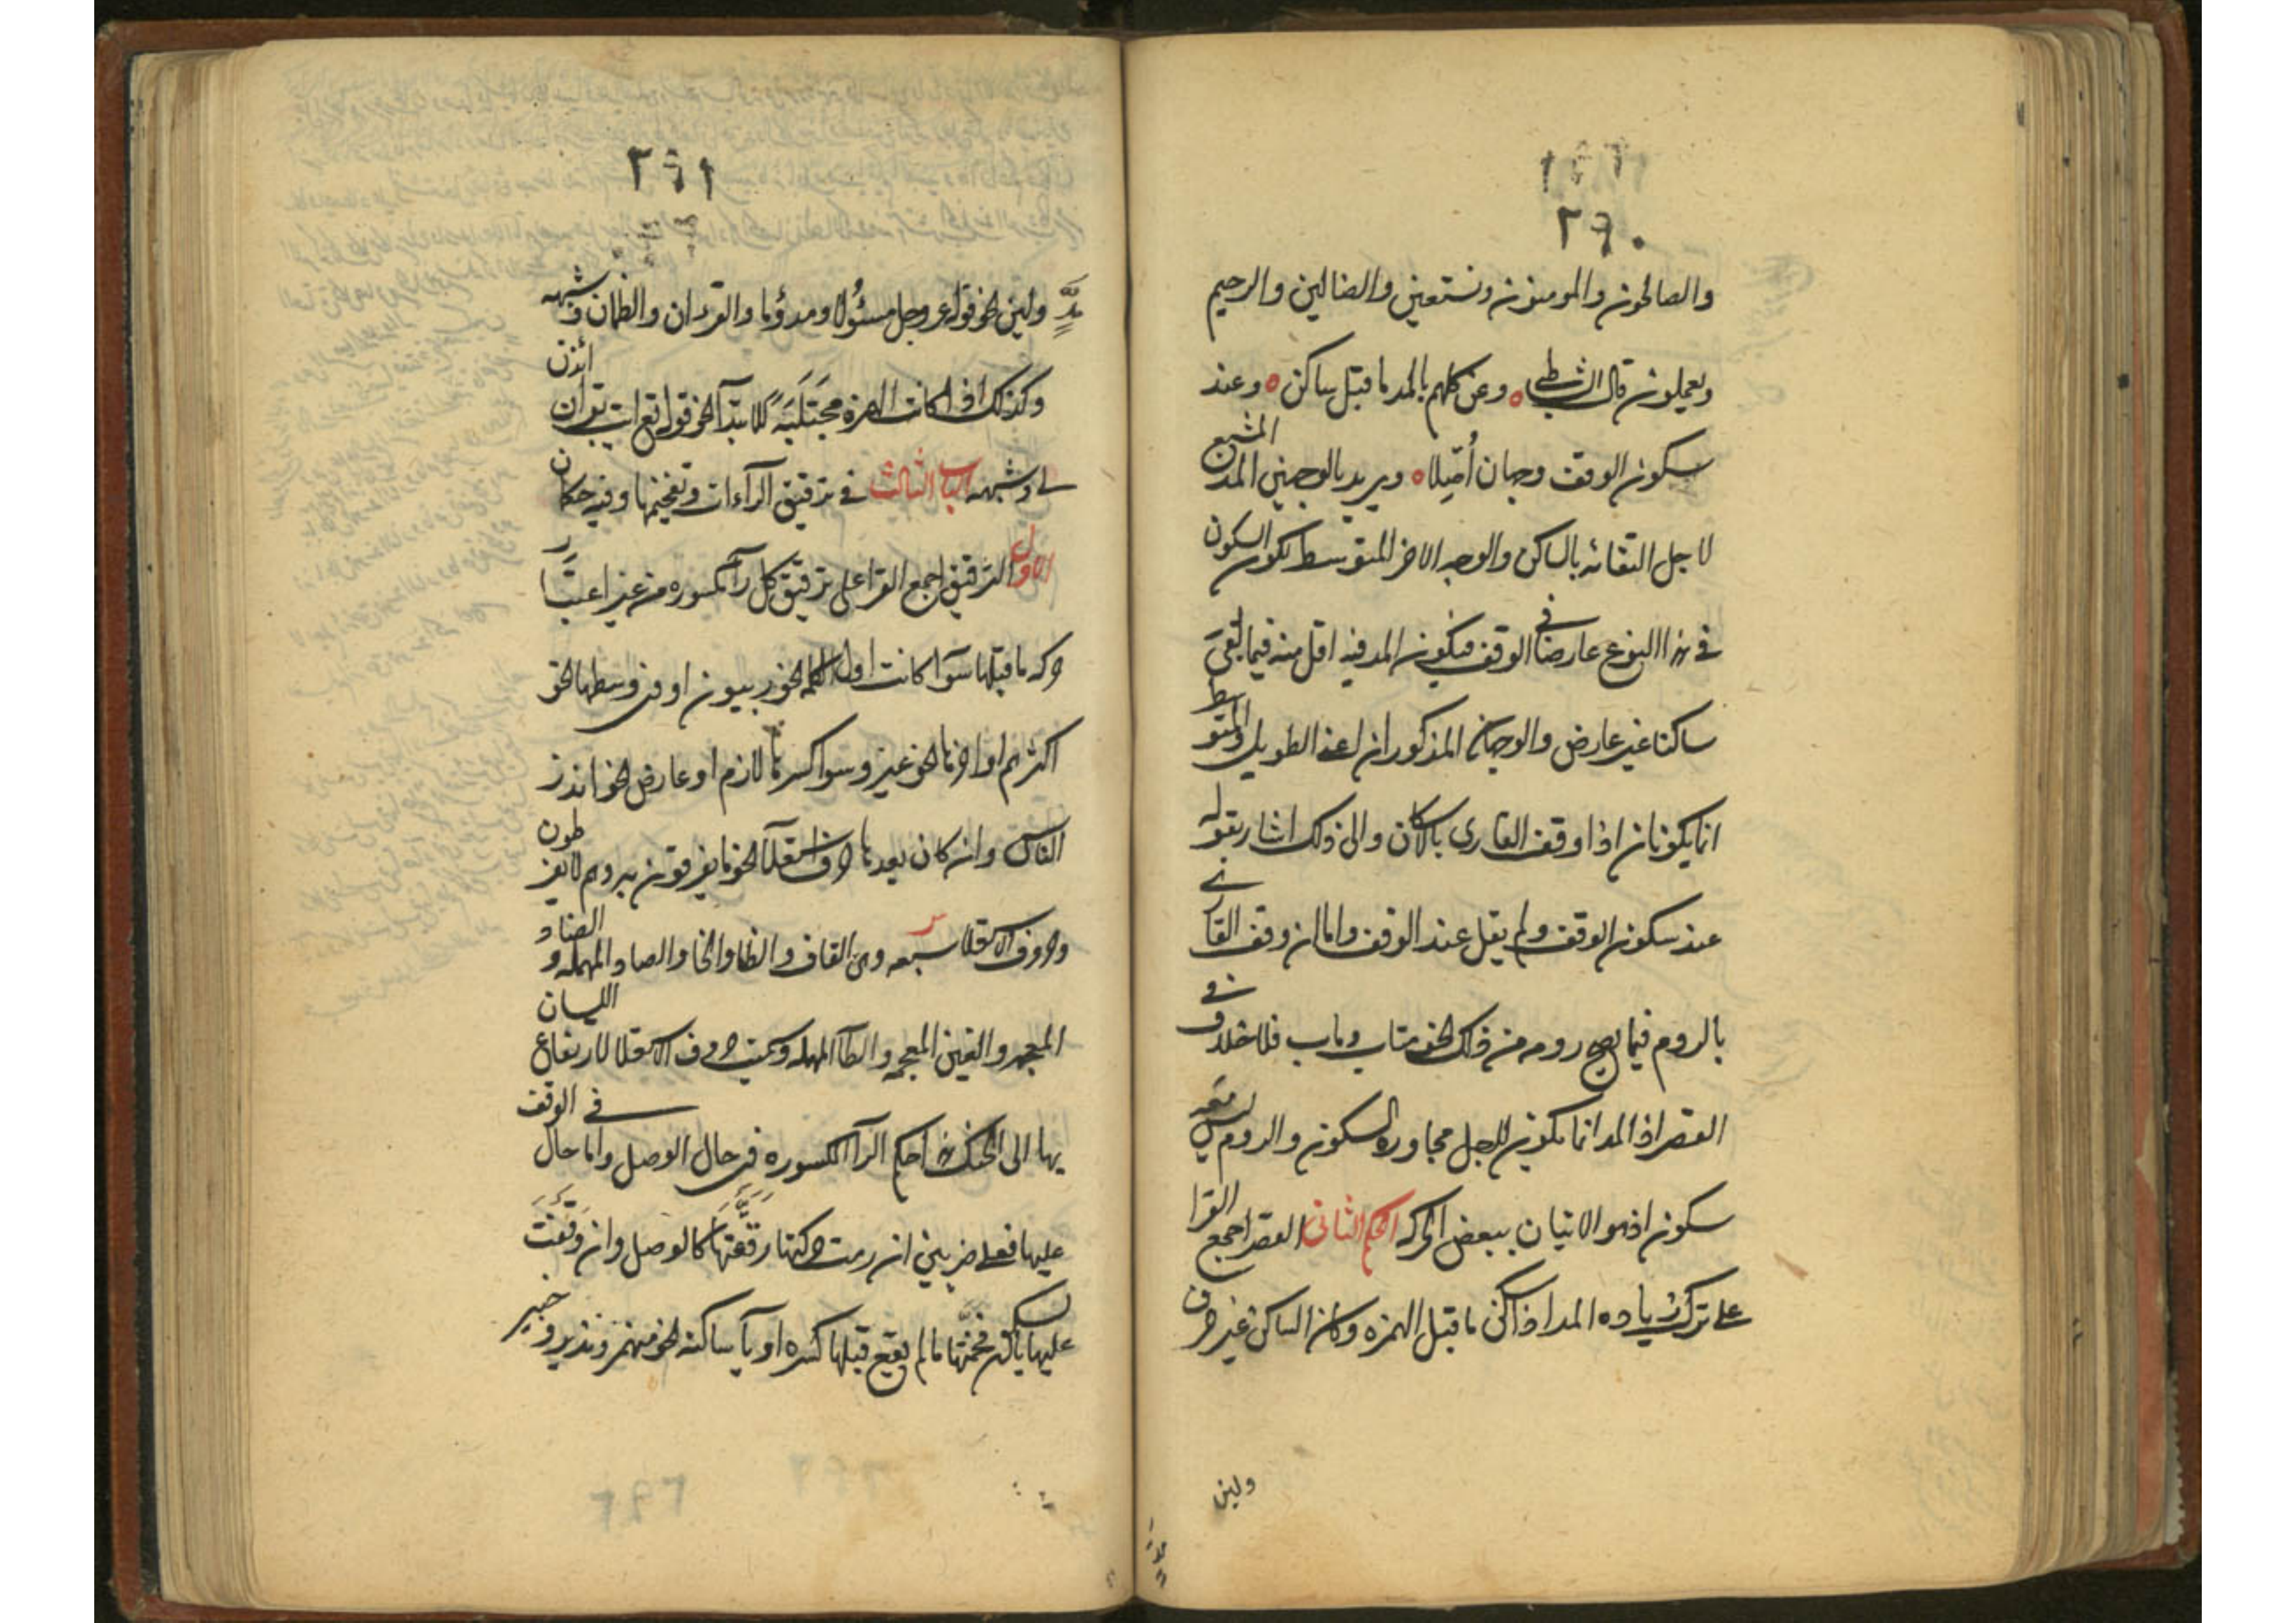 ٢٩٠
والصالحون والمومنون ونستعين والضالين والرحيم
ويعملون قال الشاطبي ٥ وعن كلهم بالمد ما قبل ساكن ٥ وعند
سكون الوقف وجهان أُصّلا ٥ ويريد بالوجهين المد المشبع
لاجل التقائه بالساكن والوجه الاخر المتوسط لكون السكون
في هذا النوع عارضا في الوقف فيكون المد فيه اقل منه فيما لقي
ساكنا غير عارض والوجهان المذكوران اعنى الطويل والمتوسط
انما يكونان اذا وقف القارى بالاسكان والى ذلك اشار بقوله
عند سكون الوقف ولم يقل عند الوقف واما ان وقف القارى
بالروم فيما يصح رومه من ذلك نحو متاب وماب فلا خلاف في
القصر اذ المد انما يكون لاجل مجاورة السكون والروم ليس معه
سكون اذ هو الاتيان ببعض الحركه الحكم الثانى القصر اجمع القرا
على ترك زياده المد اذا سكن ما قبل الهمزه وكان الساكن غير حرف
ولين
٢٩١
مدٍّ ولين نحو قوله عز وجل مسئُولا ومذؤُما والقرءان والظمان وشبهه
وكذلك اذا كانت الهمزة مجتَلَبَة للابتدآ نحو قوله تع ايت بقرآن ائذن
لي وشبهه الباب الثالث في ترقيق الرآءات وتفخيمها وفيه حكمان
الاول الترقيق اجمع القرا على ترقيق كل رآ مكسوره من غير اعتبار
حركه ما قبلها سوآ كانت اول الكلمه نحو ربيون او في وسطها نحو
اكثرهم او اخرها نحو غير وسوا كسرتها لازم او عارض نحو انذر
الناس وان كان بعدها حرف استعلآ نحو ما يفرقون به وهم لا يفرطون
وحروف الاستعلا سبعه وهي القاف والظا والخا والصاد المهمله والضاد
المعجمه والغين المعجمه والطآ المهمله وسميت حروف الاستعلا لارتفاع اللسان
بها الى الحنك هذا حكم الرآ المكسوره في حال الوصل واما حال في الوقف
عليها فعلى ضربين ان رمت حركتها رققتها كالوصل وان وقفت
عليها بالسكون فخمتها ما لم يقع قبلها كسره او يآ ساكنه نحو منهمر ونذير وخبير
٢٩٢